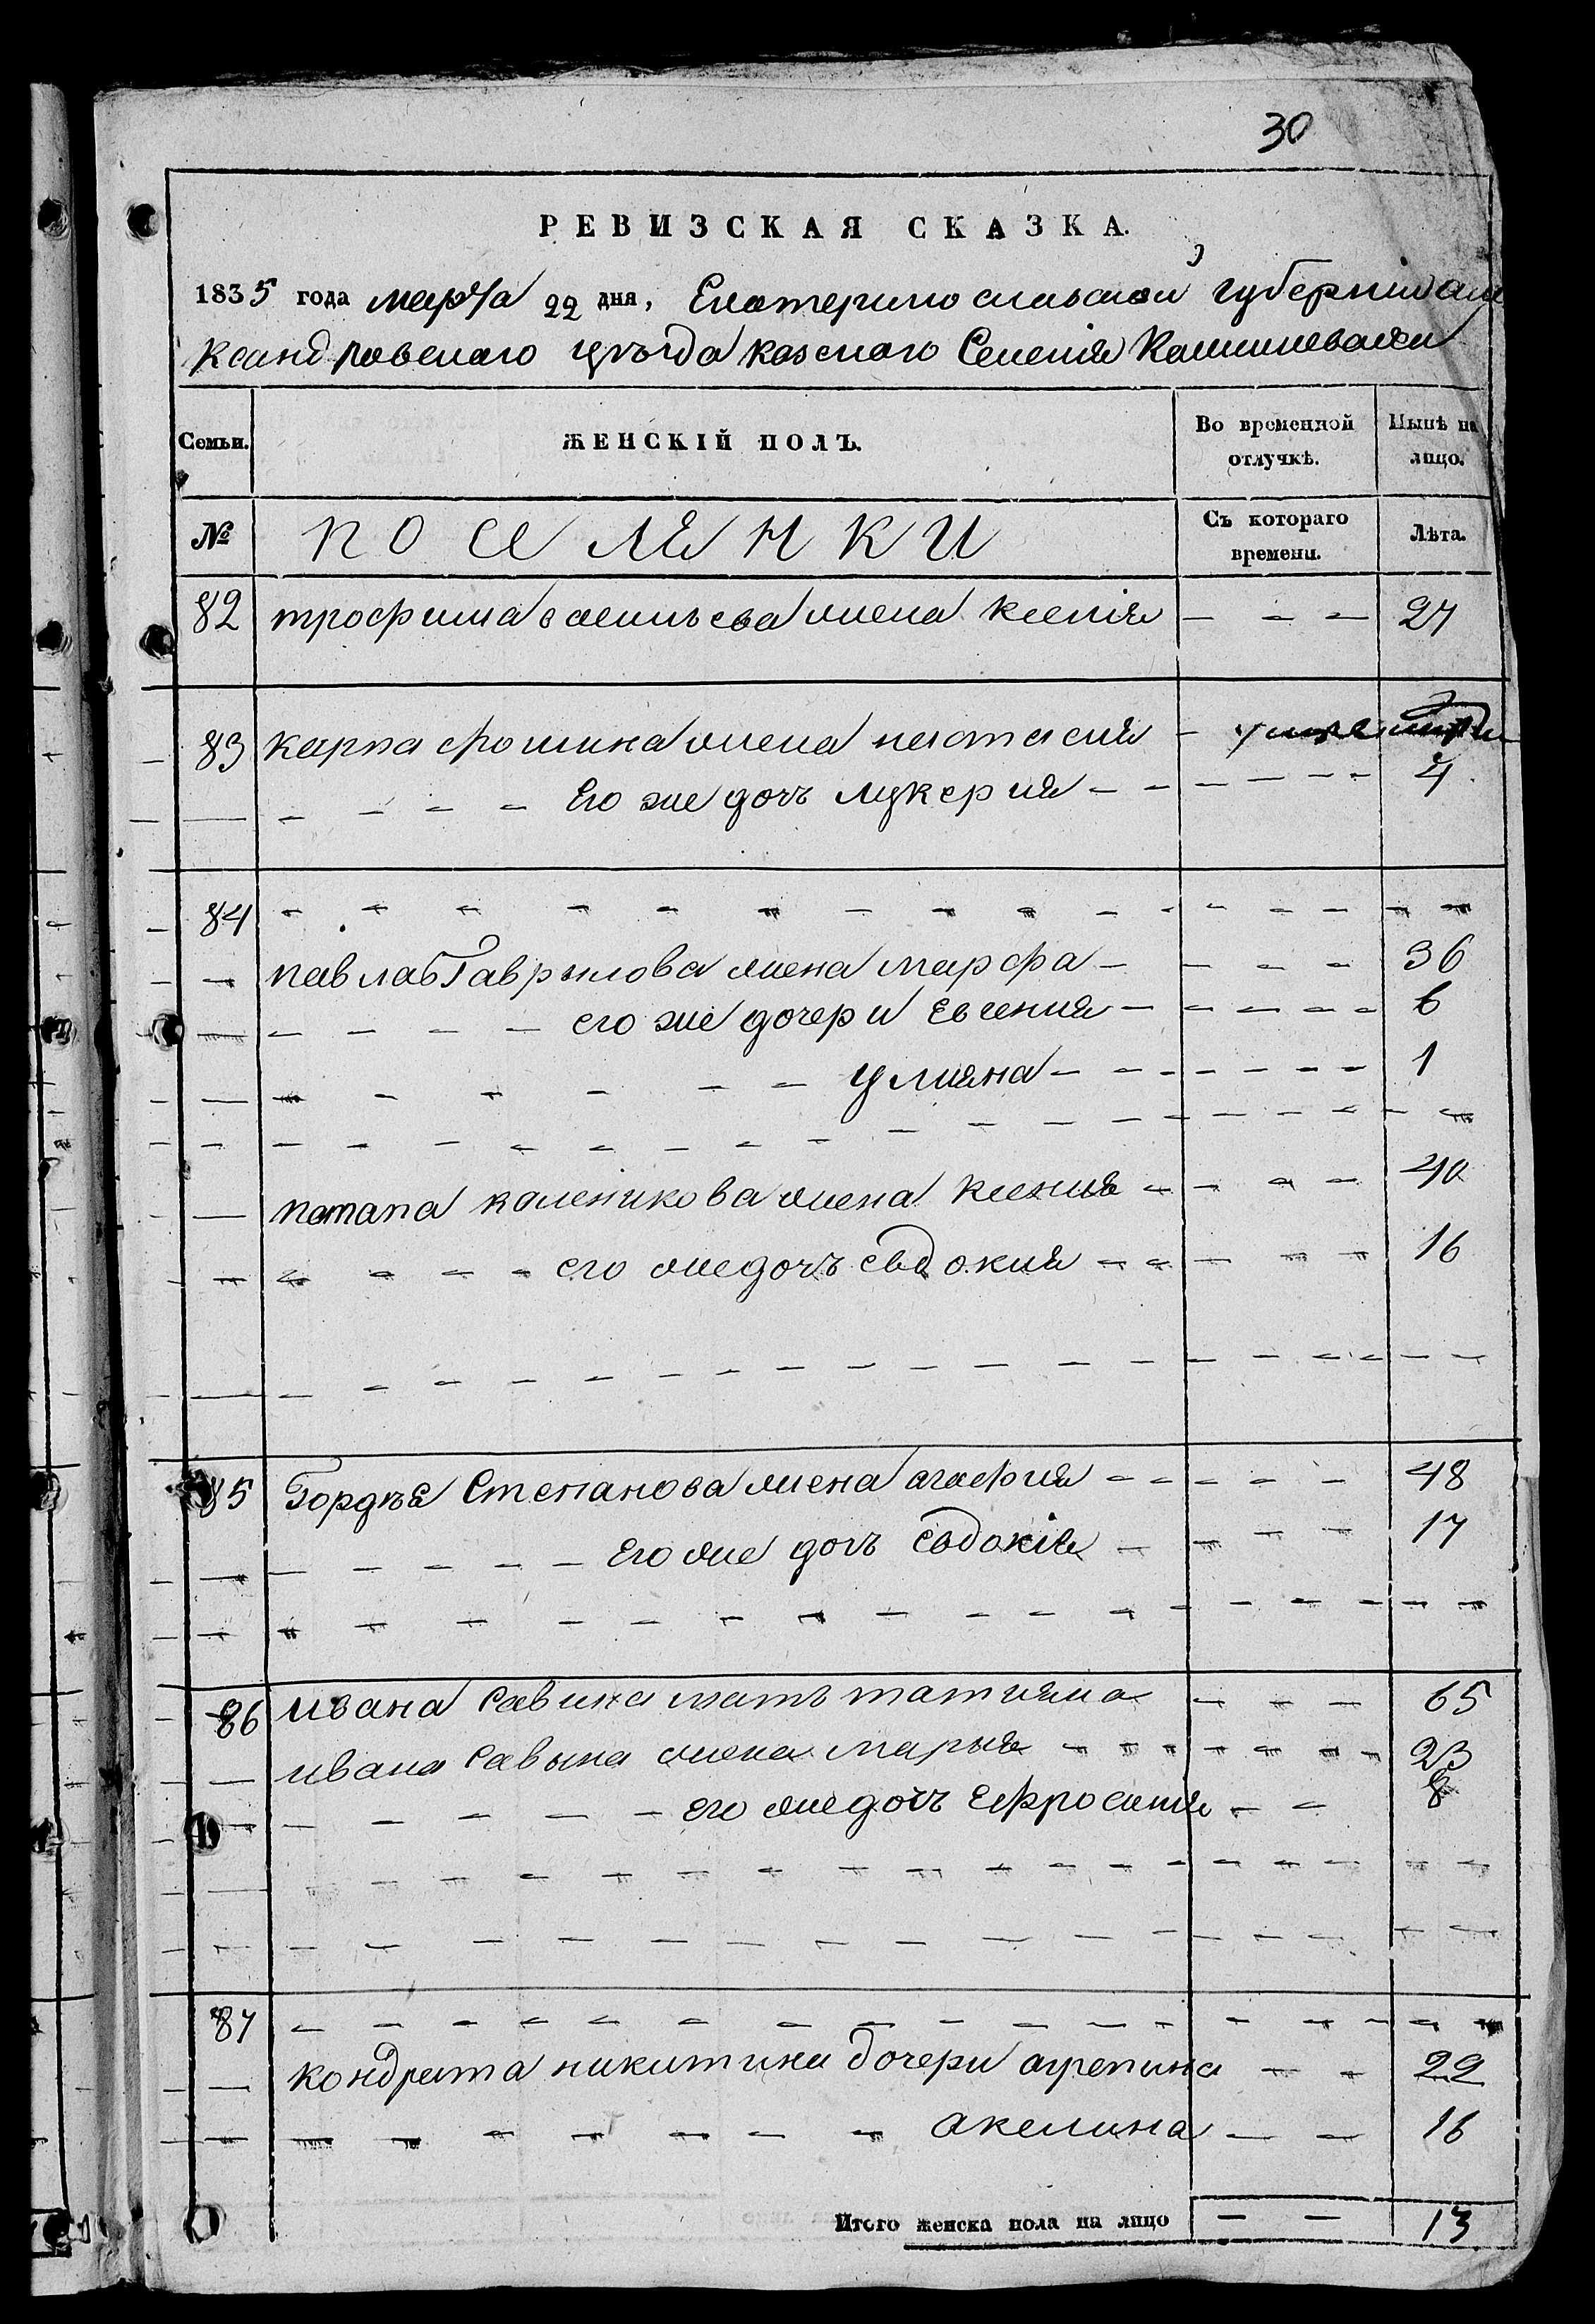 30
РЕВИЗСКАЯ СКАЗКА.
1835 года марта 22 дня, Екатеринославской губернии Але
ксандровского уѣзда казенного Селения Камышевахи
Семьи. ЖЕНСКІЙ ПОЛЪ. Во временной отлучкѣ. Нынѣ на лицо.
№ ПОСЕЛЯНКИ Съ котораго времени. Лѣта.
82 трофима васильева жена ксения - - - 27
83 карпа фомина жена настасия -
- - - - его же дочь лукерия - - - - - - 4
84 - - - - - - - - - - - - - - - -
- павла Гаврылова жена марфа - - - - 36
- - - - - его же дочери евгения - - - - - 6
- - - - - - - улияна - - - - - - - 1
- - - - - - - - - - - - - - - -
- потапа каленикова жена ксения - - - - 40
- - - - - его же дочь евдокия - - - - - 16
- - - - - - - - - - - - - - - -
85 Гордѣя Степанова жена агафия - - - - - 48
- - - - - - его же дочь Евдокія - - - - 17
- - - - - - - - - - - - - - - -
86 ивана савина мать татияна - - - 65
- ивана савына жена марья - - - - - - - 23
- - - - - его же дочь Ефросиния - - 8
- - - - - - - - - - - - - - - -
- - - - - - - - - - - - - - - -
87 - - - - - - - - - - - - - - - -
- кондрата никитина дочери агрепина - - 22
- - - - - - - - акелина - - 16
Итого женска пола на лицо - - 13